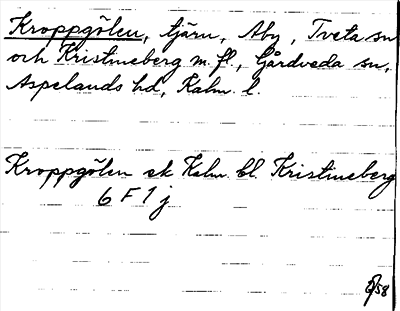 Kroppgölen, tjärn, Åby, Tveta sn
och Kristineberg m. fl., Gårdveda sn,
Aspelands hd, Kalm. l.
Kroppgölen ek Kalm. bl. Kristineberg
6 F 1 j
/58